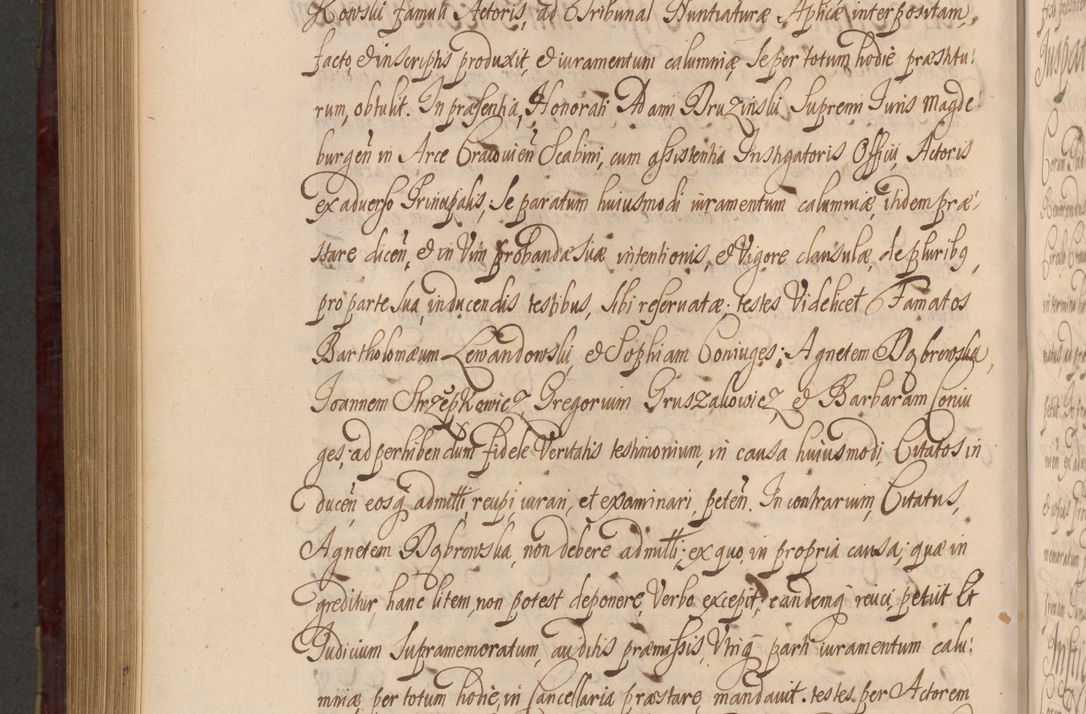 kowski famuli Actoris, ad Tribunal Nuntiaturæ Aplicæ interpositam,
facto, et in scriptis produxit, et iuramentum calumniæ Se per totum hodie præstitu:
rum, obtulit. In præsentia, Honorati Adami Druzinski Supremi Iuris Magde
burgen in Arce Cracovien Scabini, cum assistentia Instigatoris Officij, Actoris
ex adverso Principalis, Se paratum huiusmodi iuramentum calumniæ, itidem præ-
stare dicen, et in Vim probandæ Suæ intentionis, et Vigore clausulæ, de pluribq
pro parte Sua, inducendis testibus, Sibi reservatæ; testes Videlicet Famatos
Bartholomæum Lewandowski, et Sophiam Coniuges; Agnetem Dąbrowska,
Joannem Strzępkowicz, Gregorium Gruszakowicz, et Barbaram Coniu
ges, ad perhibendum fidele Veritatis testimonium, in causa huiusmodi, Citatos in
ducen, eosq admitti, recipi, iurari, et examinari, peten. In contrarium, Citatus,
Agnetem Dąbrowska, non debere admitti; ex quo, in propria causa; quæ in
greditur hanc litem, non potest deponere, Verbo excepit; eandemq reiici, petiit Et
Judicium Supramemoratum, auditis præmissis, Utriq parti iuramentum calu:
mniæ, per totum hodie, in Cancellaria præstare, mandavit. testes, per Actorem